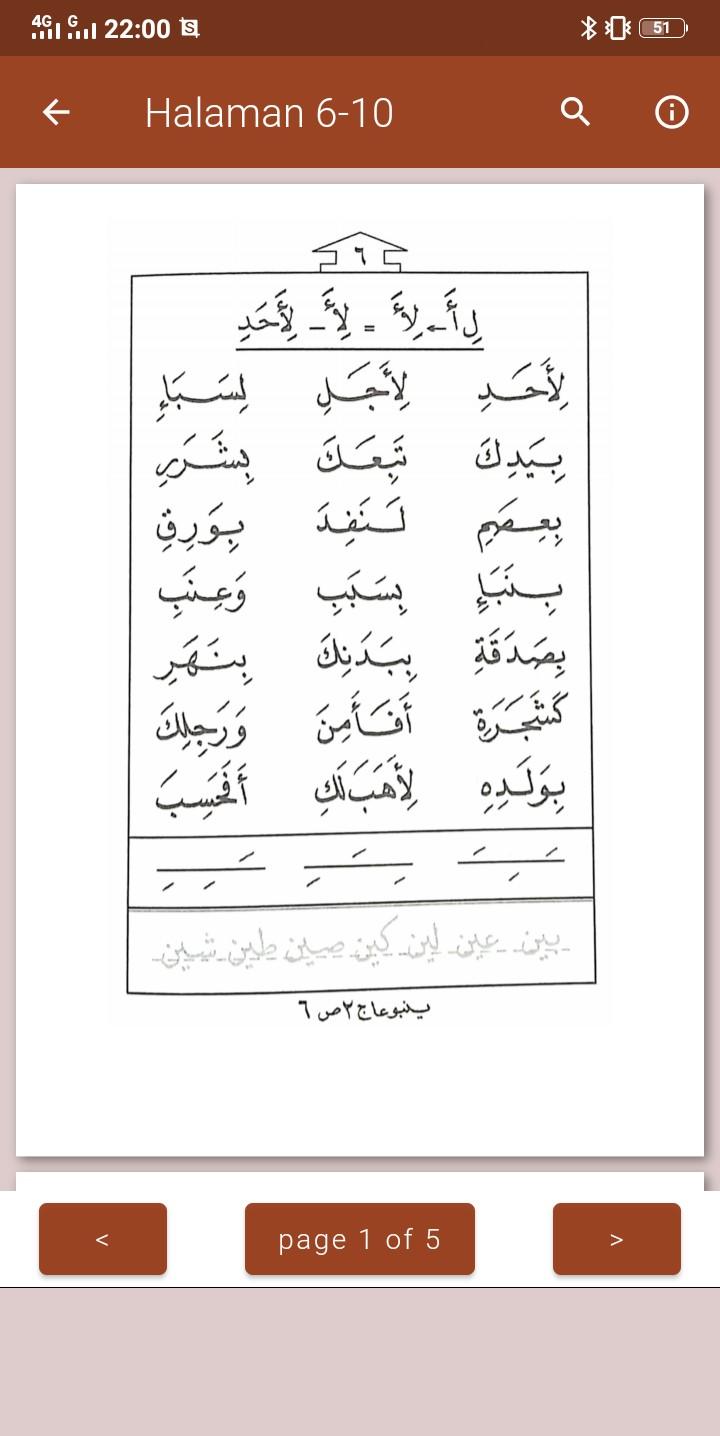 4G G 22:00 51
Halaman 6-10
٦
لِ أَ ← لِأَ = لِأَ - لِأَحَدِ
لِأَحَدِ لِأَجَلِ لِسَبَإِ
بِيَدِكَ تَبِعَكَ بِشَرَرِ
بِعِصَمِ لَنَفِدَ بِوَرِقِ
بِنَبَإِ بِسَبَبِ وَعِنَبِ
بِصَدَقَةِ بِبَدَنِكَ بِنَهَرِ
كَشَجَرَةِ أَفَأَمِنَ وَرَجِلِكَ
بِوَلَدِهِ لِأَهَبَ لَكِ أَفَحَسِبَ
بين عين لين كين صين طين شين
ينبوعا ج ٢ ص ٦
< page 1 of 5 >